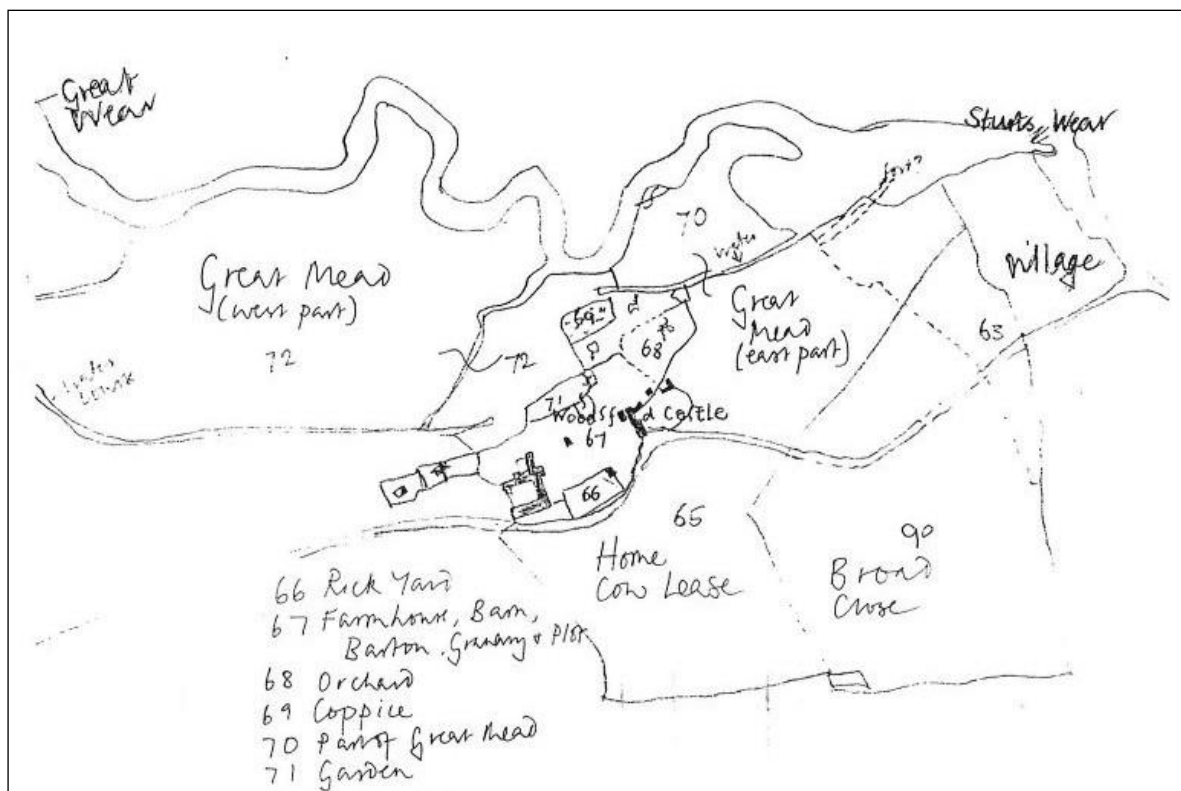 Great
Wear
Sturts Wear
70
Water
Village
Great Mead
(west part)
72
Great
Mead
(east part)
63
69
68
72
71
Woodsford Castle
67
66
65
Home
Cow Lease
90
Broad
Close
66 Rick Yard
67 Farmhouse, Barn,
Barton, Granary & Plot
68 Orchard
69 Coppice
70 Part of Great Mead
71 Garden